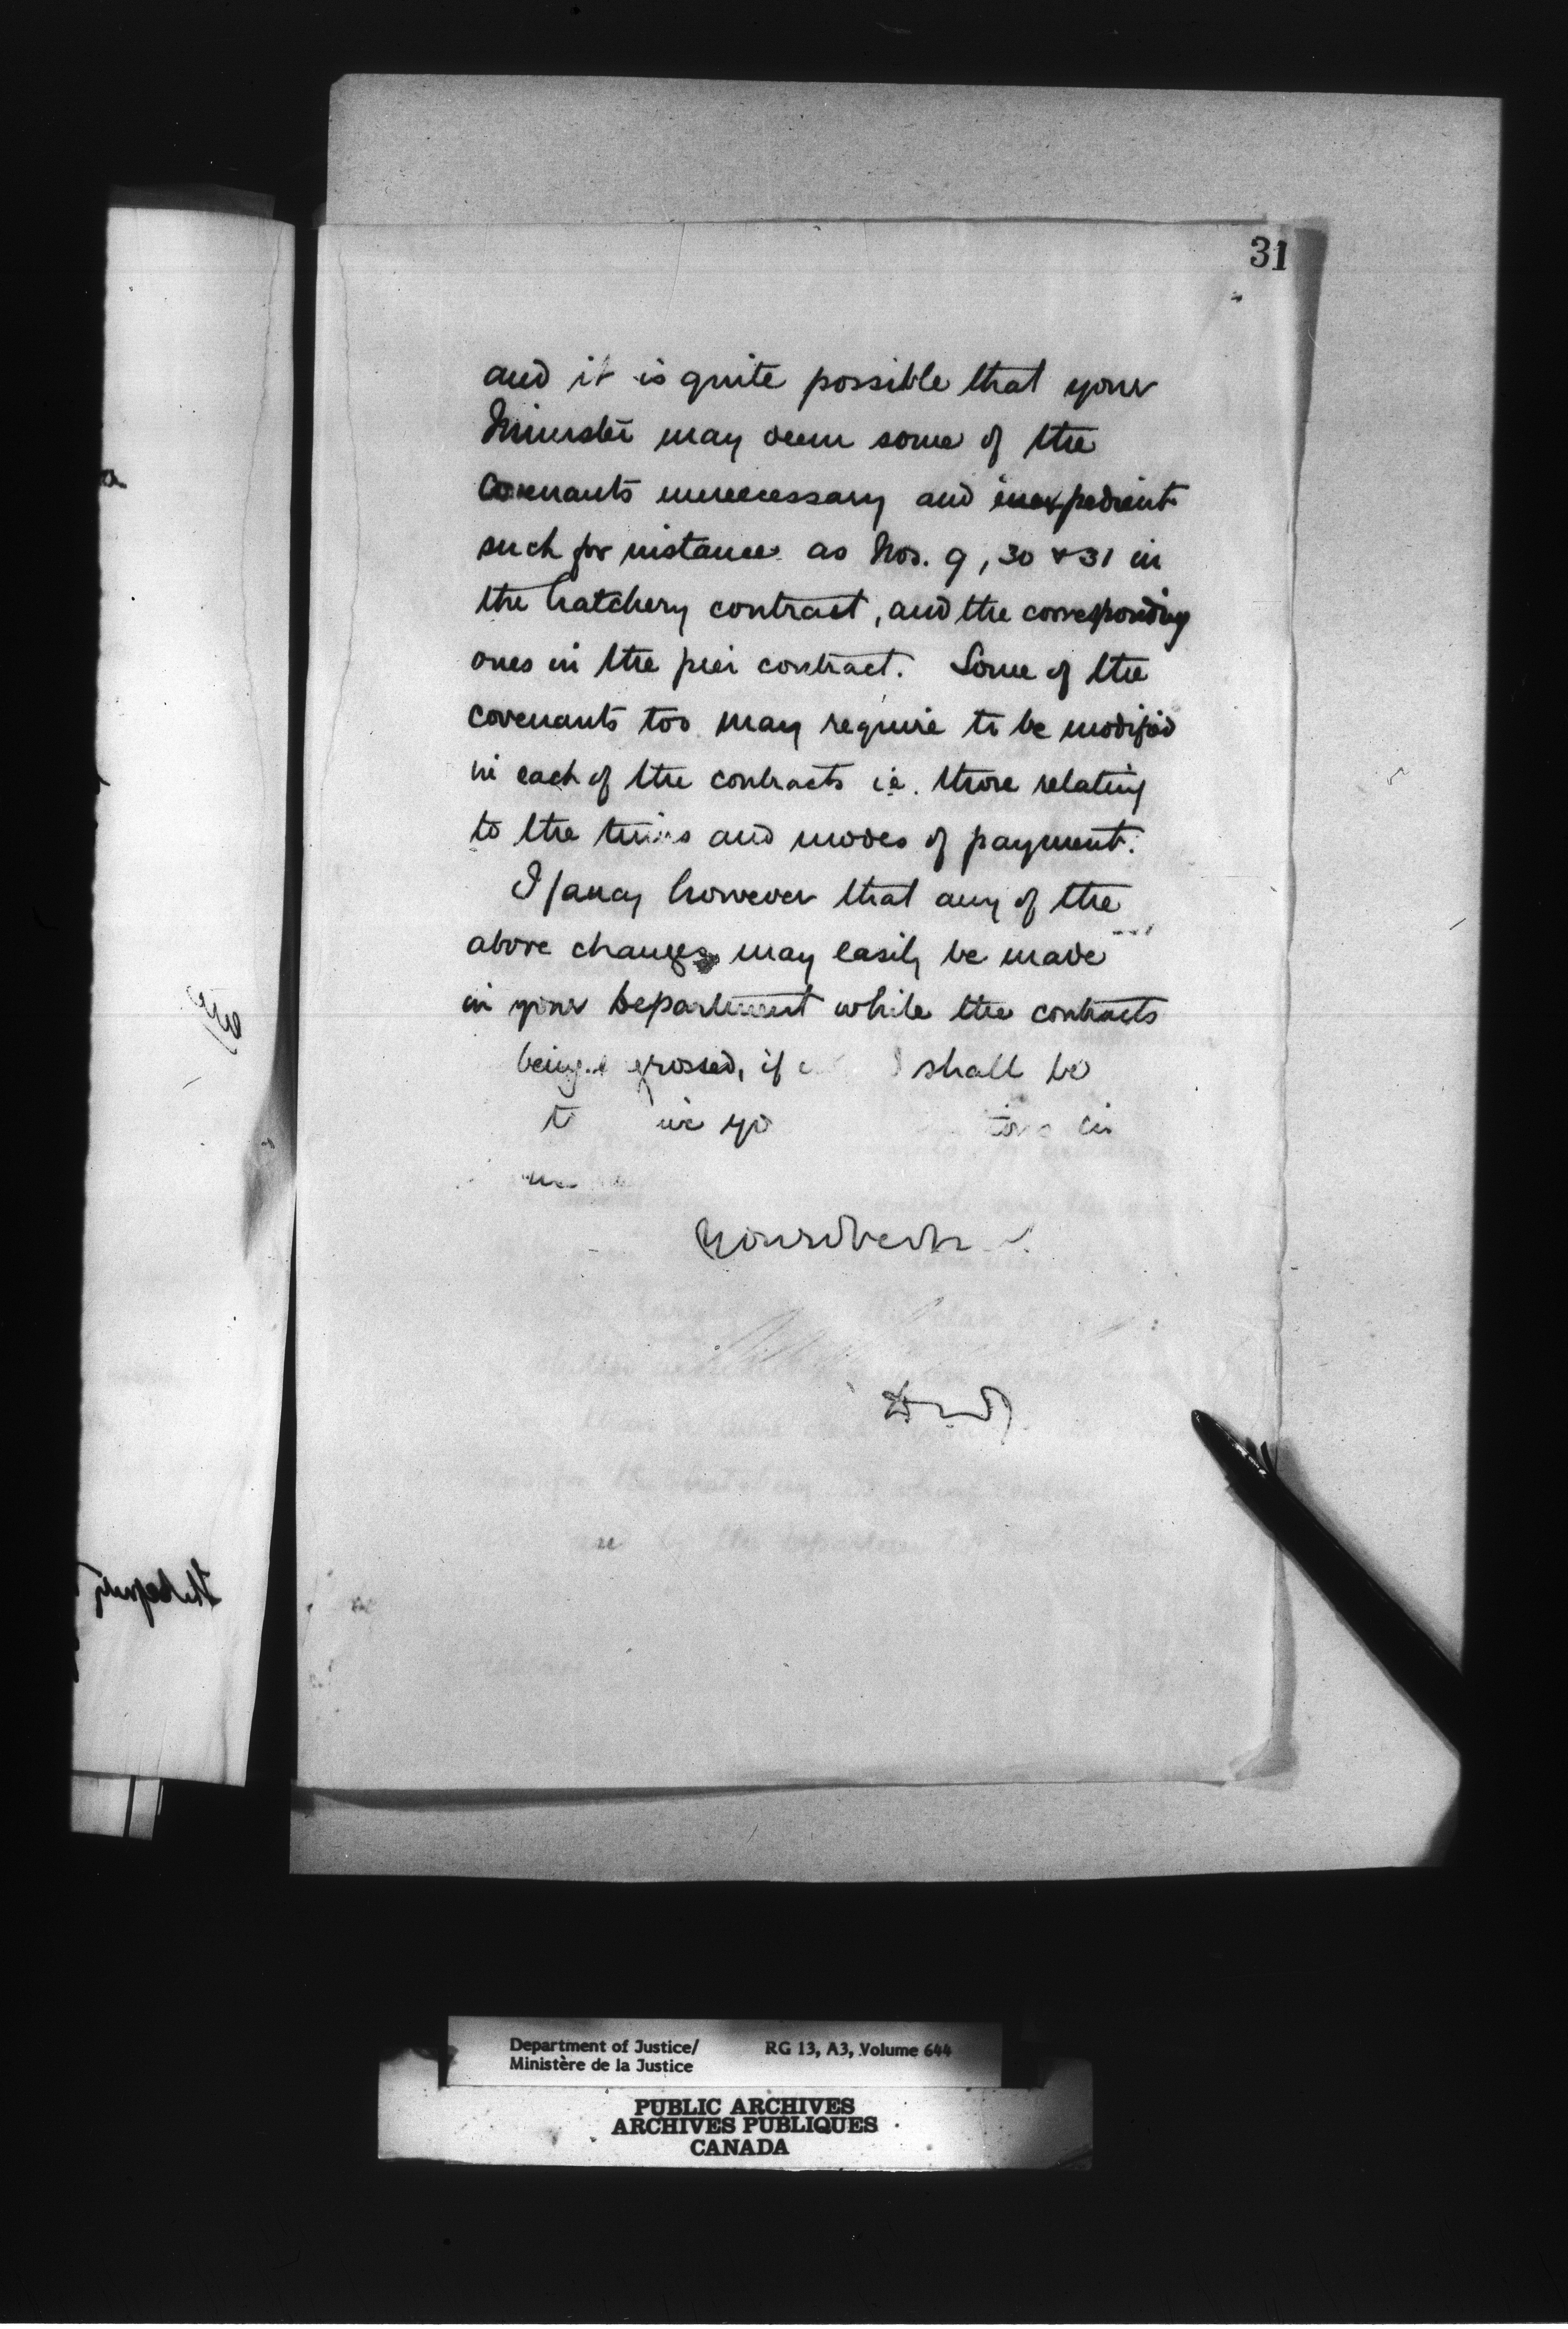 31
and it is quite possible that your
Minister may deem some of the
covenants unnecessary and inexpedient
such for instance as Nos. 9, 30 & 31 in
the hatchery contract, and the corresponding
ones in the pier contract. Some of the
covenants too may require to be modified
in each of the contracts i.e. those relating
to the times and modes of payment.
I fancy however that any of the
above changes may easily be made
in your Department while the contracts
being grossed, if shall be
Department of Justice/ RG 13, A3, Volume 644
Ministère de la Justice
PUBLIC ARCHIVES
ARCHIVES PUBLIQUES
CANADA